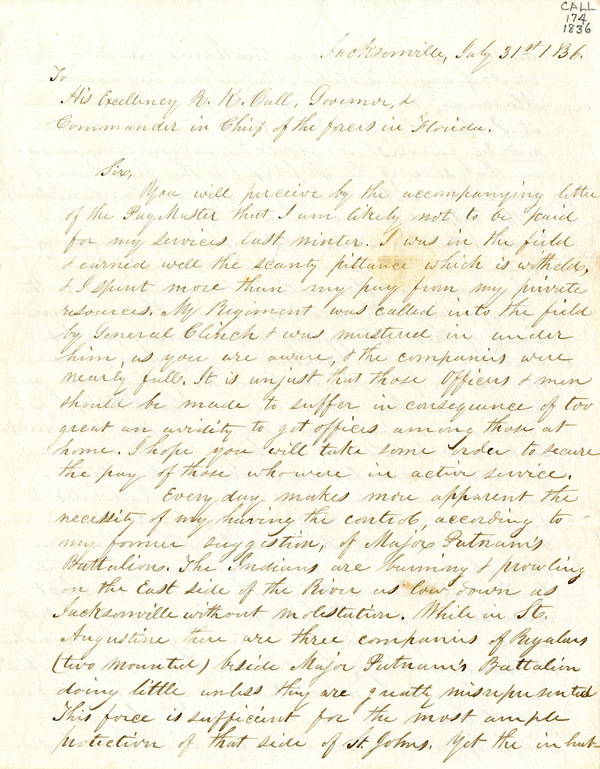 CALL
174
1836
Jacksonville, July 31st 1836.
To
His Excellency R. K. Call, Governor, &
Commander in Chief of the forces in Florida.
Sir,
You will perceive by the accompanying letter
of the Pay Master that I am likely not to be paid
for my services last winter. I was in the field
& earned well the scanty pittance which is witheld,
& I spent more than my pay from my private
resources. My Regiment was called into the field
by General Clinch & was mustered in under
him, as you are aware, & the companies were
nearly full. It is unjust that those Officers & men
should be made to suffer in consequence of too
great an avidity to get offices among those at
home. I hope you will take some order to secure
the pay of those who were in active service.
Every day makes more apparent the
necessity of my having the control, according to
my former suggestion, of Major Putnam's
Battalions. The Indians are burning & prowling
on the East side of the River as low down as
Jacksonville without molestation. While in St.
Augustine there are three companies of Regulars
(two mounted) beside Major Putnam's Battalion
doing little unless they are greatly misrepresented
This force is sufficient for the most ample
protection of that side of St. Johns. Yet the inhab-